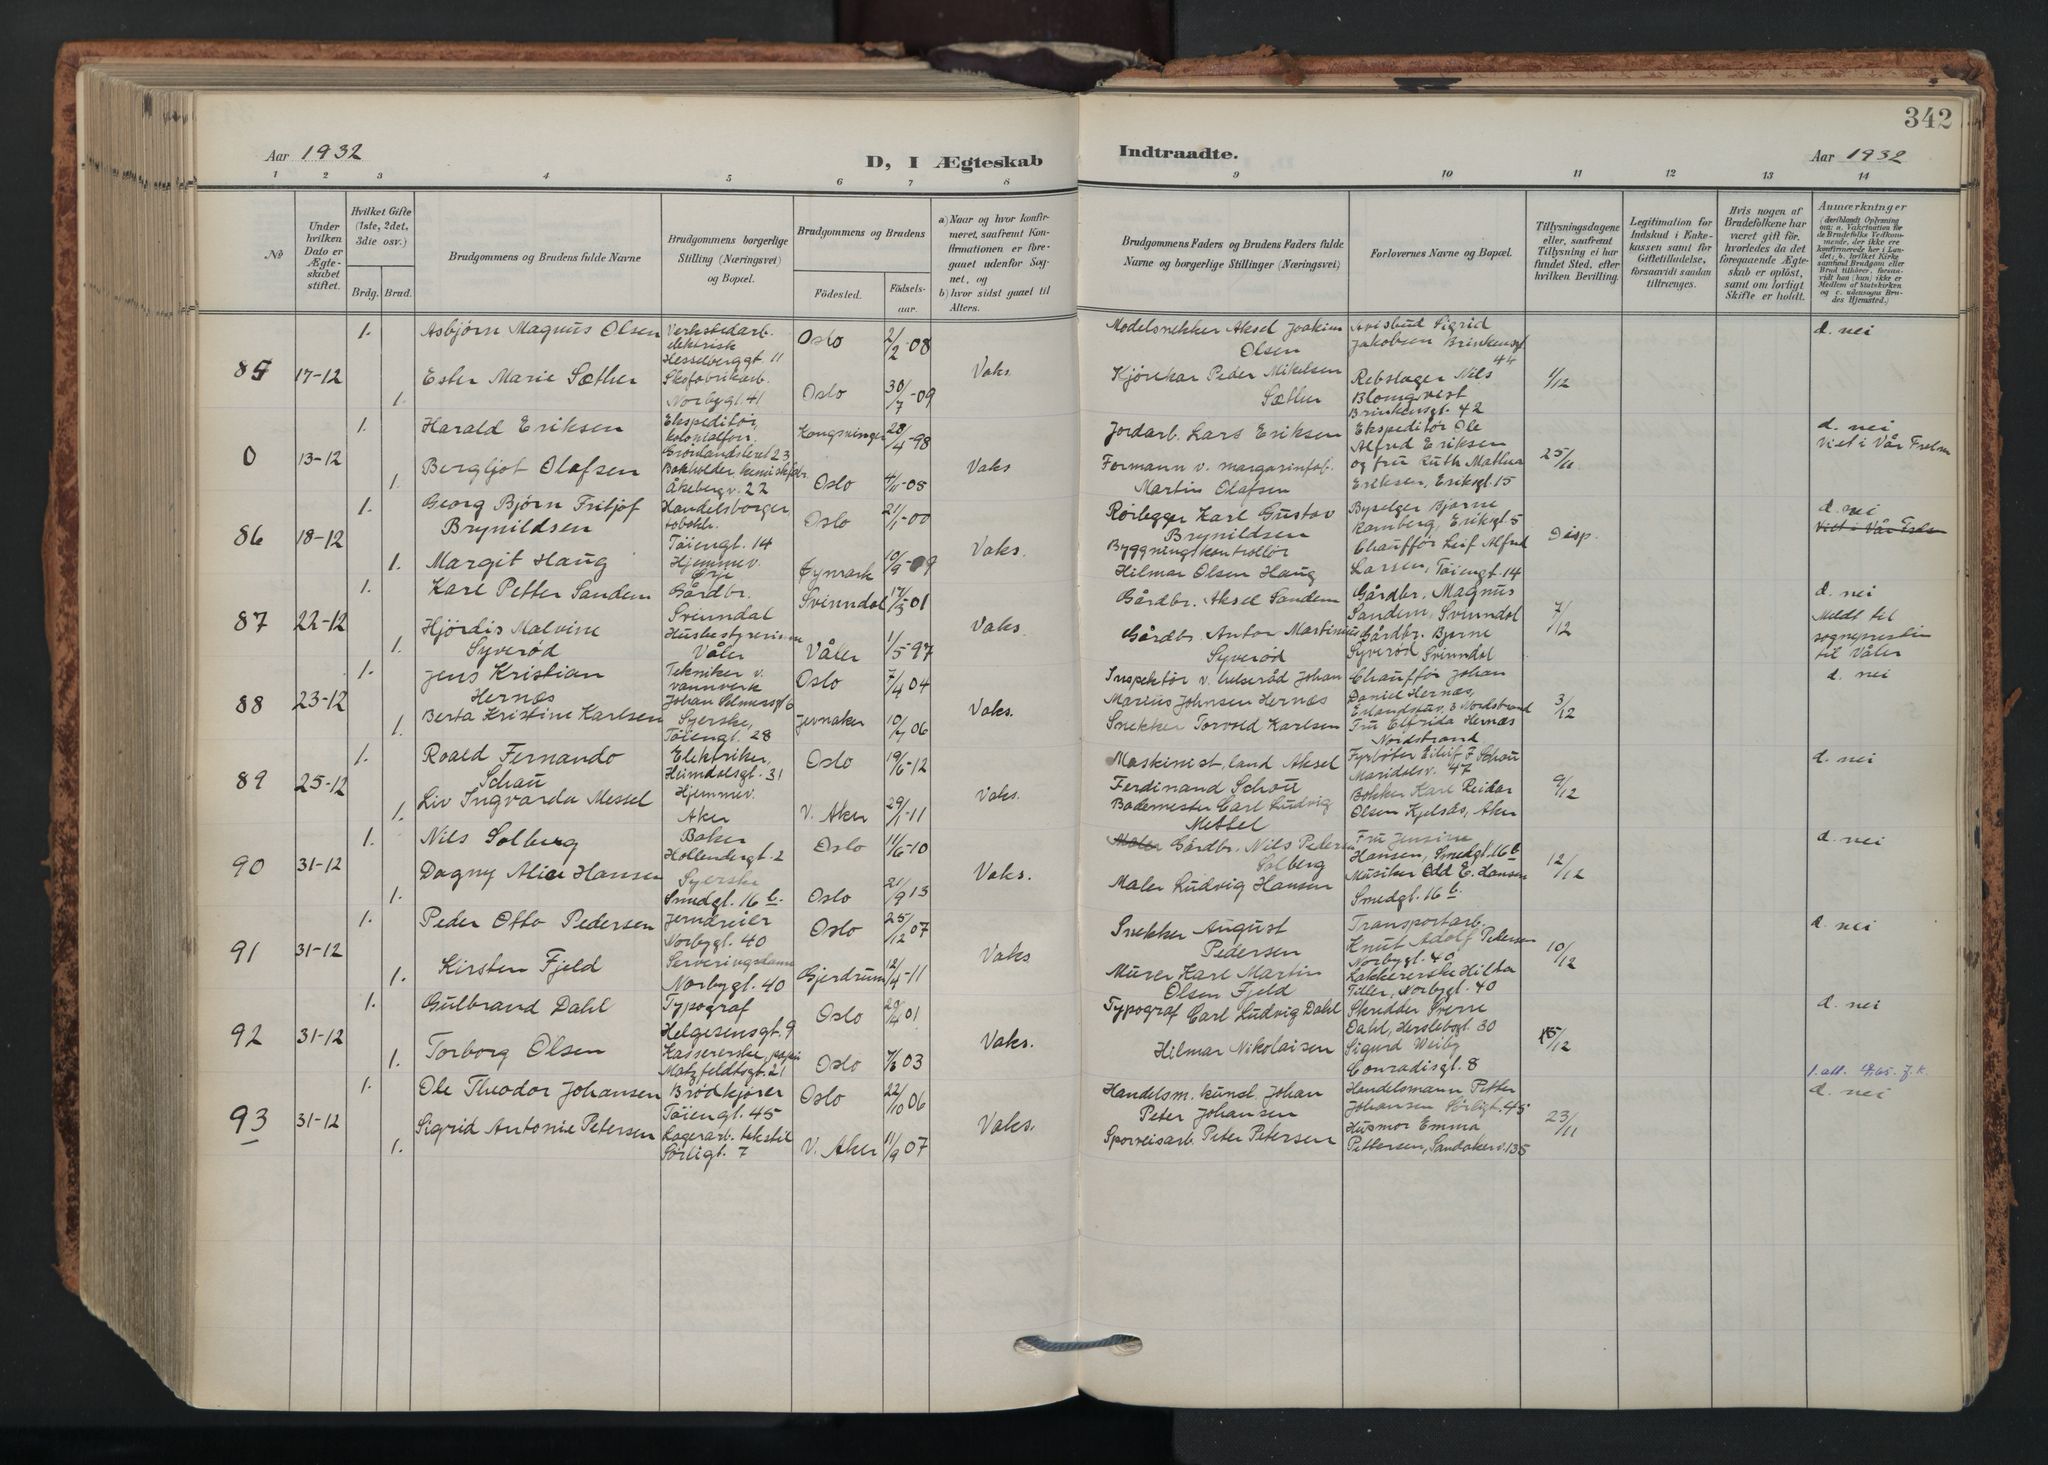 342
Aar 1932
D, I Ægteskab
Indtraadte.
Aar 1932
1 2 3 4 5 6 7 8 9 10 11 12 13 14
No
Under hvilken Dato er Ægteskabet stiftet.
Hvilket Gifte (1ste, 2det, 3die osv.)
Brdg. Brud.
Brudgommens og Brudens fulde Navne
Brudgommens borgerlige Stilling (Næringsvei) og Bopæl.
Brudgommens og Brudens
Fødested.
Fødselsaar.
a) Naar og hvor konfirmeret, saafremt Konfirmationen er foregaaet udenfor Sognet, og
b) hvor sidst gaaet til Alters.
Brudgommens Faders og Brudens Faders fulde Navne og borgerlige Stillinger (Næringsvei)
Forlovernes Navne og Bopæl.
Tillysningsdagene eller, saafremt Tillysning ei har fundet Sted, efter hvilken Bevilling.
Legitimation for Indskud i Enkekassen samt for Giftetilladelse, forsaavidt saadan tiltrænges.
Hvis nogen af Brudefolkene har været gift før, hvorledes da det foregaaende Ægteskab er opløst, samt om lovligt Skifte er holdt.
Anmærkninger
85 17-12
1. Asbjørn Magnus Olsen
Verkstedarb. elektrisk
Hesselberggt. 11
Oslo 2/2-08
Vaks
Modelsnekker Aksel Joakim
Olsen
Avisbud Sigrid
Jakobsen Brinkensgt
44
1/12
d. nei
1. Ester Marie Sæther
Skofabrikarb.
Norbygt. 41
Oslo 30/7-09
Kjørekar Peder Mikelsen
Sæther
Rebslager Nils
Blomqvist
Brinkensgt. 42
0 13-12
1. Harald Eriksen
Ekspeditør,
kolonialforr.
Grønlandsleret 23
Kongsvinger 28/4-98
Vaks
Jordarb. Lars Eriksen
Ekspeditør Ole
Alfred Eriksen
25/11
d. nei
Viet i Vår Frelser
1. Bergljot Olafsen
Bokholder
Åkebergv. 22
Oslo 4/11-05
Formann v. margarinfab.
Martin Olafsen
og fru Ruth Mathea
Eriksen, Eriksgt. 15
86 18-12
1. Georg Bjørn Fritjof
Brynildsen
Handelsborger
tobakk.
Tøiengt. 14
Oslo 21/1-00
Vaks.
Rørlegger Karl Gustav
Brynildsen
Byselger Bjarne
Ramberg, Eriksgt. 5
Disp.
d. nei
Viet i Vår Frelser
1. Margit Haug
Hjemmev.
Ørje
Øymark 10/9-09
Byggningskontrollør
Hilmar Olsen Haug
Chauffør Leif Alfred
Larsen, Tøiengt. 14
87 22-12
1. Karl Petter Sandem
Gårdbr.
Svinndal
Svinndal 17/3-01
Vaks.
Gårdbr. Aksel Sandem
Gårdbr. Magnus
Sandem, Svinndal
7/12
d. nei
Meldt til
sognepresten
til Våler
1. Hjørdis Malvine
Syverød
Husbestyrerinne
Våler
Våler 1/5-97
Gårdbr. Anton Martinius
Syverød
Gårdbr. Bjarne
Syverød Svinndal
88 23-12
1. Jens Kristian
Hernæs
Tekniker v.
vannverk
Johan Selmersgt 6
Oslo 7/4 04
Vaks.
Inspektør v. helseråd Johan
Marius Johnsen Hernæs
Chauffør Johan
Daniel Hernæs,
Nordstrand
3/12
d. nei
1. Berta Kristine Karlsen
Syerske,
Tøiengt. 28
Jevnaker
Snekker Torvald Karlsen
Fru Elfrida Hernæs
Nordstrand
89 25-12
1. Roald Fernando
Schau
Elektriker,
Heimdalsgt. 31
Oslo 19/6-12
Vaks.
Maskinist, land Aksel
Ferdinand Schou
Fyrbøter Eilif F Schau
Maridalsv. 47
9/12
d. nei
1. Liv Ingvarda Messel
Hjemmev.
Aker
V. Aker 29/1-11
Bademester Carl Ludvig
Messel
Bokker Karl Reidar
Olsen Kjelsås, Aker
90 31-12
1. Nils Solberg
Baker
Hollendergt. 2
Oslo 11/6-10
Vaks.
Maler Gårdbr. Nils Pedersen
Solberg
Fru Jensine
Hansen, Smedgt. 16 b
12/12
d. nei
1. Dagny Alice Hansen
Syerske
Smedgt. 16 b.
Oslo 21/9 13
Maler Ludvig Hansen
Musiker Odd E. Hansen
Smedgt. 16 b
91 31-12
1. Peder Otto Pedersen
Jerndreier
Norbygt. 40
Oslo 25/12 07
Vaks
Snekker August
Pedersen
Transportarb.
Knut Adolf Pedersen
Norbygt. 40
10/12
d. nei
1. Kirsten Fjeld
Serveringsdame
Norbygt. 40
Gjerdrum 12/4-11
Murer Karl Martin
Olsen Fjeld
Lakkererske Hilda
Tiller, Norbygt. 40
92 31-12
1. Gulbrand Dahl
Typograf
Helgesensgt. 9
Oslo 01
Vaks.
Typograf Carl Ludvig Dahl
Skredder Sverre
Dahl, Herslebsgt. 30
15/12
d. nei
1. Torborg Olsen
Kassererske, papir
Motzfeldtsgt. 21
Oslo 03
Hilmar Nikolaisen
Sigurd Weiby
Conradisgt. 8
93 31-12
1. Ole Theodor Johansen
Brødkjører
Tøiengt. 45
Oslo 22/10 06
Vaks.
Handelsm. kunst. Johan
Peter Johansen
Handelsmann Petter
Johansen Sørligt. 45
23/11
1. att. 9/65. J. K.
d. nei
1. Sigrid Antonie Petersen
Lagerarb. tekstil
Sørligt. 7
V. Aker 11/9 07
Sporveisarb. Peter Petersen
Husmor Emma
Pettersen, Sandakerv. 135